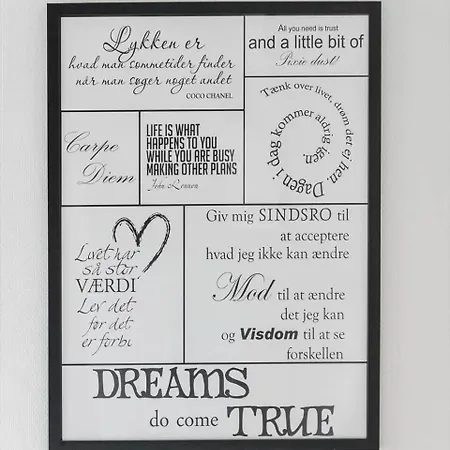 Lykken er
hvad man sommetider finder
når man søger noget andet
COCO CHANEL
All you need is trust
and a little bit of
Pixie dust!
Carpe
Diem
LIFE IS WHAT
HAPPENS TO YOU
WHILE YOU ARE BUSY
MAKING OTHER PLANS
John Lennon
Tænk over livet, drøm det ej hen. Dagen i dag kommer aldrig igen.
Livet har
så stor
VÆRDI
Lev det
før det
er forbi
Giv mig SINDSRO til
at acceptere
hvad jeg ikke kan ændre
Mod til at ændre
det jeg kan
og Visdom til at se
forskellen
DREAMS
do come TRUE